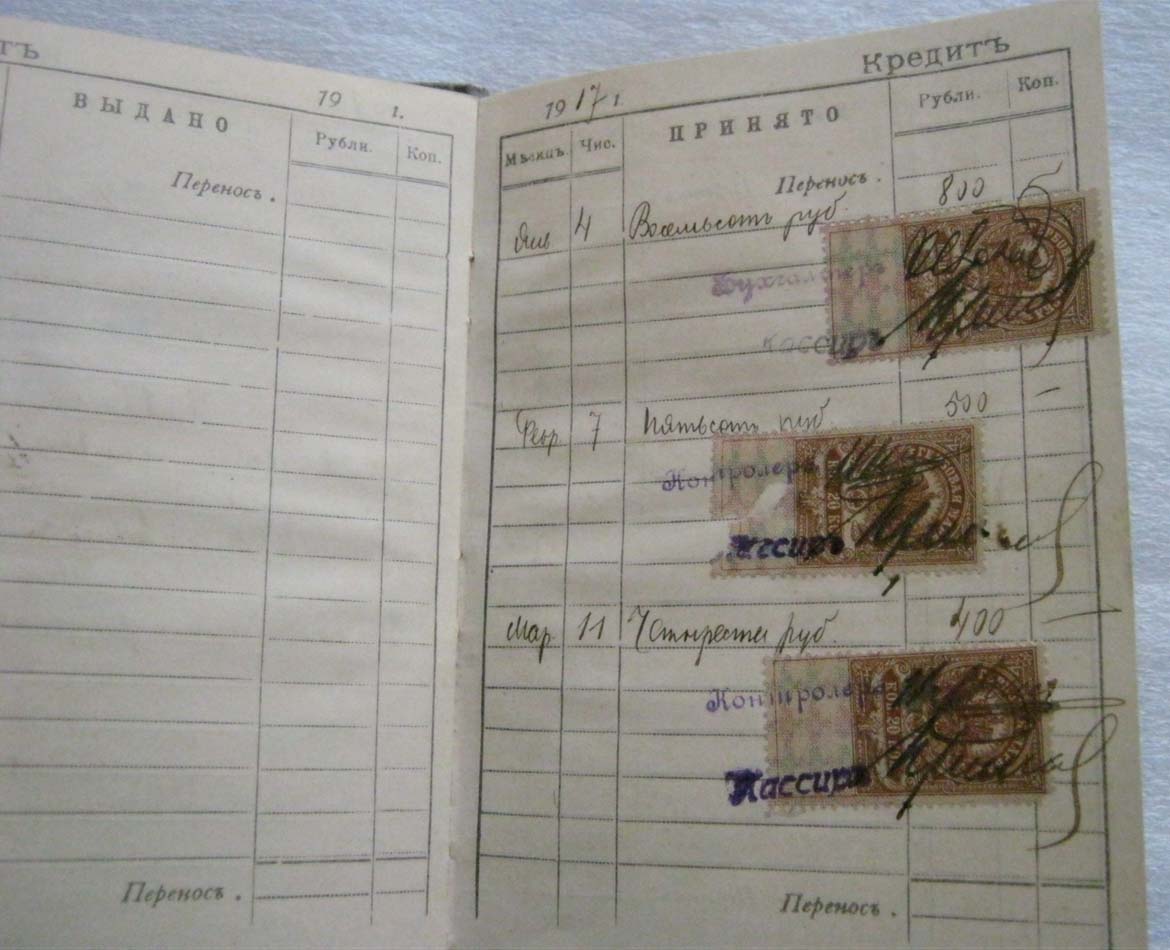 тъ
19 г.
ВЫДАНО
Рубли.
Коп.
Переносъ.
Переносъ.
Кредитъ
1917 г.
Мѣсяцъ.
Чис.
ПРИНЯТО
Рубли.
Коп.
Переносъ.
Янв 4 Восемьсотъ руб. 800
Бухгалтеръ
Кассиръ
Февр 7 Пятьсотъ руб 500 —
Контролеръ
Кассиръ
КОП. 20 КОП.
Мар. 11 Четыреста руб. 400 —
Контролеръ
Кассиръ
КОП. 20
Переносъ.